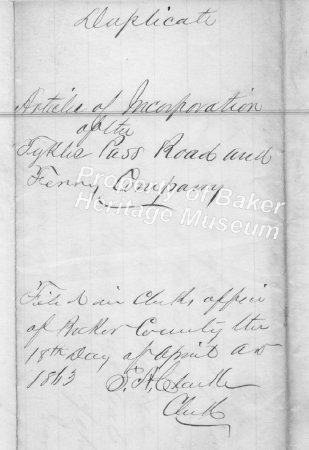 Duplicate
Articles of Incorporation
of the
Pass Road and
Ferry Company
Property of Baker
Heritage Museum
Filed in Clerks office
of Baker County the
18th Day of April AD
1863 S. A. Clarke
Clerk